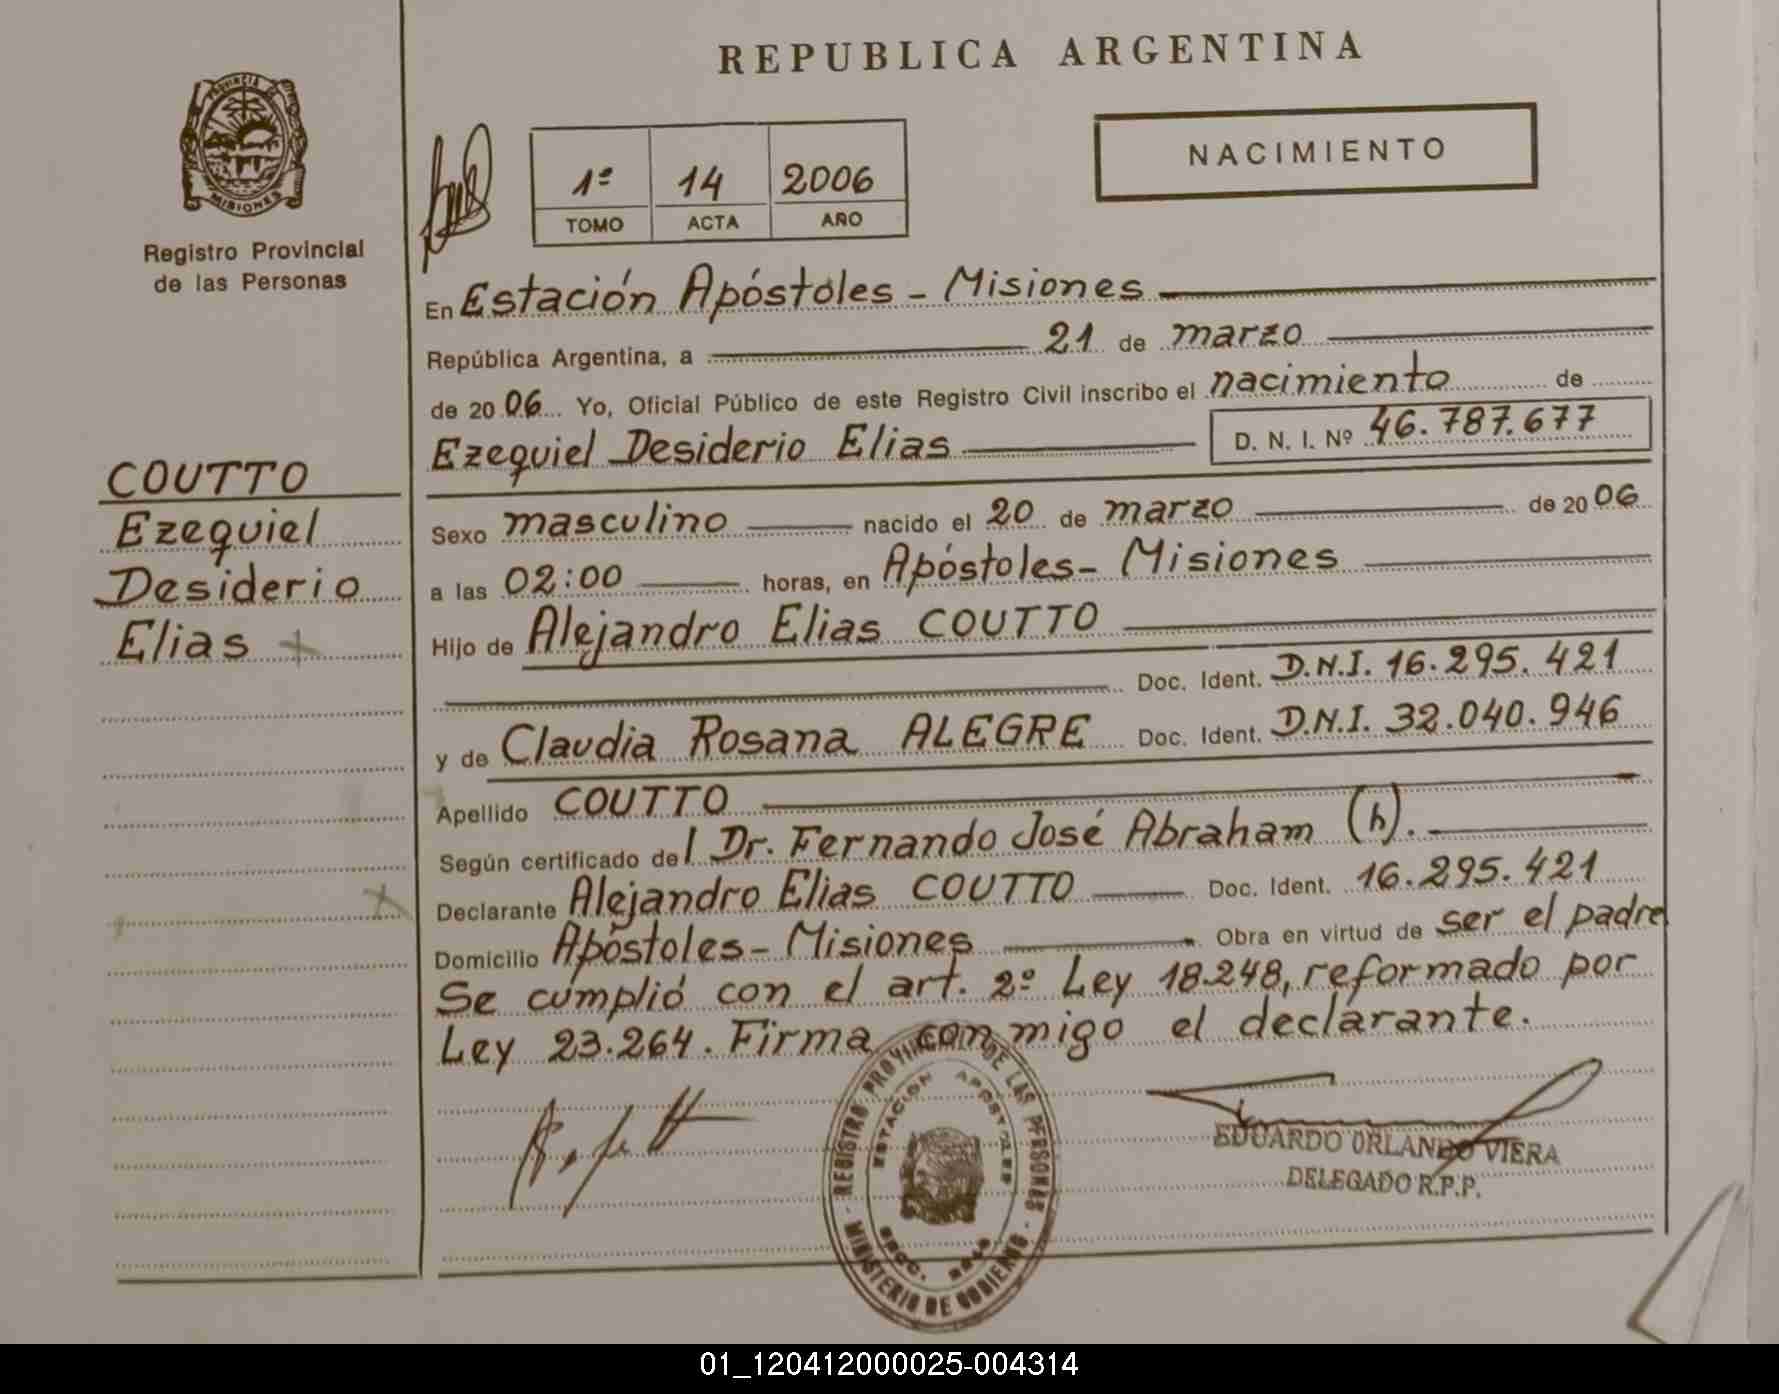 REPUBLICA ARGENTINA
PROVINCIA DE
MISIONES
Registro Provincial
de las Personas
NACIMIENTO
1º 14 2006
TOMO ACTA AÑO
En Estación Apóstoles - Misiones
República Argentina, a 21 de marzo
de 2006 Yo, Oficial Público de este Registro Civil inscribo el nacimiento de
Ezequiel Desiderio Elias D. N. I. Nº 46.787.677
COUTTO
Ezequiel
Desiderio
Elias
Sexo masculino nacido el 20 de marzo de 2006
a las 02:00 horas, en Apóstoles- Misiones
Hijo de Alejandro Elias COUTTO
Doc. Ident. D.N.I. 16.295.421
y de Claudia Rosana ALEGRE Doc. Ident. D.N.I. 32.040.946
Apellido COUTTO
Según certificado del Dr. Fernando José Abraham (h).
Declarante Alejandro Elias COUTTO Doc. Ident. 16.295.421
Domicilio Apóstoles- Misiones Obra en virtud de ser el padre
Se cumplió con el art. 2º Ley 18.248, reformado por
Ley 23.264. Firma conmigo el declarante.
REGISTRO PROVINCIAL DE LAS PERSONAS
ESTACION APOSTOLES
MINISTERIO DE GOBIERNO
EDUARDO ORLANDO VIERA
DELEGADO R.P.P.
01_120412000025-004314